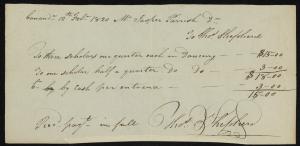 Canand. 12th Feby. 1820 Mr Jasper Parrish Dr
To Thos Shepherd
To three scholars one quarter each in Dancing — $15-00
To one scholar half a quarter Do Do — 3-00
$18-00
by cash per entrance — 3-00
15-00
Recd. payt. in full Thos. Shepherd